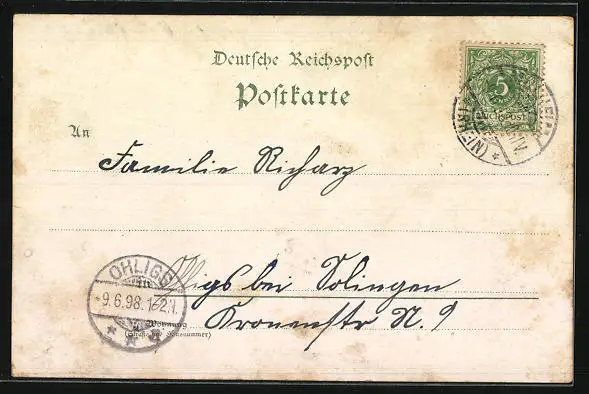 Deutsche Reichspost
Postkarte
5
REICHSPOST
An
Familie Richarz
OHLIGS
9.6.98. 1-2N.
in
Ohligs bei Solingen
Wohnung
(Straße und Hausnummer)
Kronenstr N. 9